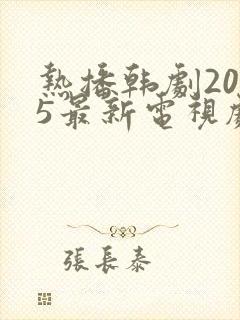 熱播韩劇20
5最新電視劇
張長泰